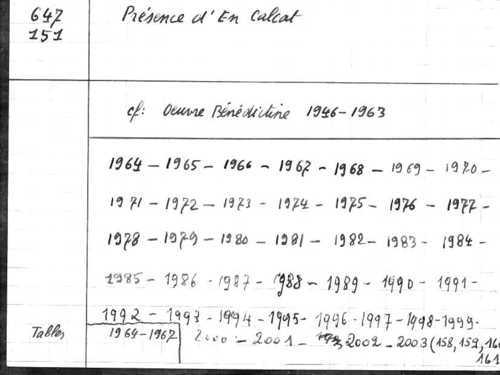 647 Présence d'En Calcat
151
cf: Oeuvre Bénédictine 1946-1963
1964 - 1965 - 1966 - 1967 - 1968 - 1969 - 1970 -
1971 - 1972 - 1973 - 1974 - 1975 - 1976 - 1977 -
1978 - 1979 - 1980 - 1981 - 1982 - 1983 - 1984 -
1985 - 1986 - 1987 - 1988 - 1989 - 1990 - 1991 -
1992 - 1993 - 1994 - 1995 - 1996 - 1997 - 1998 - 1999 -
Tables 1964-1967 2000 - 2001 - 2002 - 2003 (158, 159, 160
161